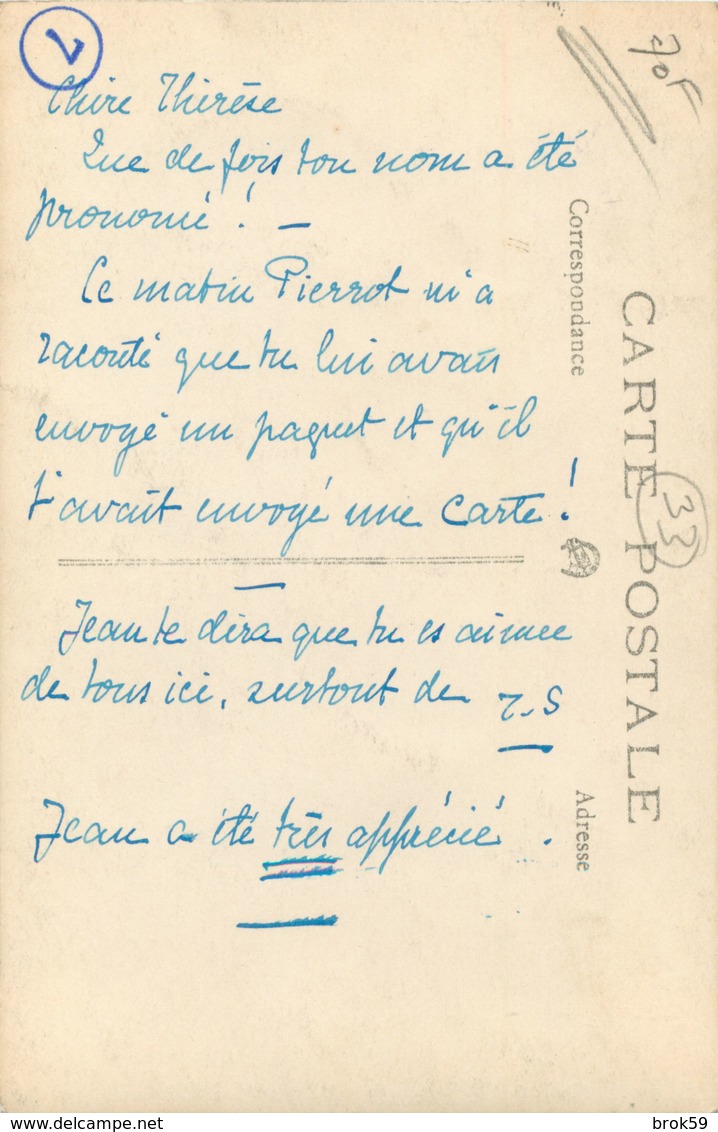 7
70F
Chère Thérèse
Que de fois ton nom a été
prononcé ! —
Ce matin Pierrot m'a
raconté que tu lui avais
envoyé un paquet et qu'il
t'avait envoyé une carte !
Jean te dira que tu es aimée
de tous ici, surtout de
Jean a été très apprécié .
Correspondance
CARTE POSTALE
33
Adresse
delcampe.net
brok59